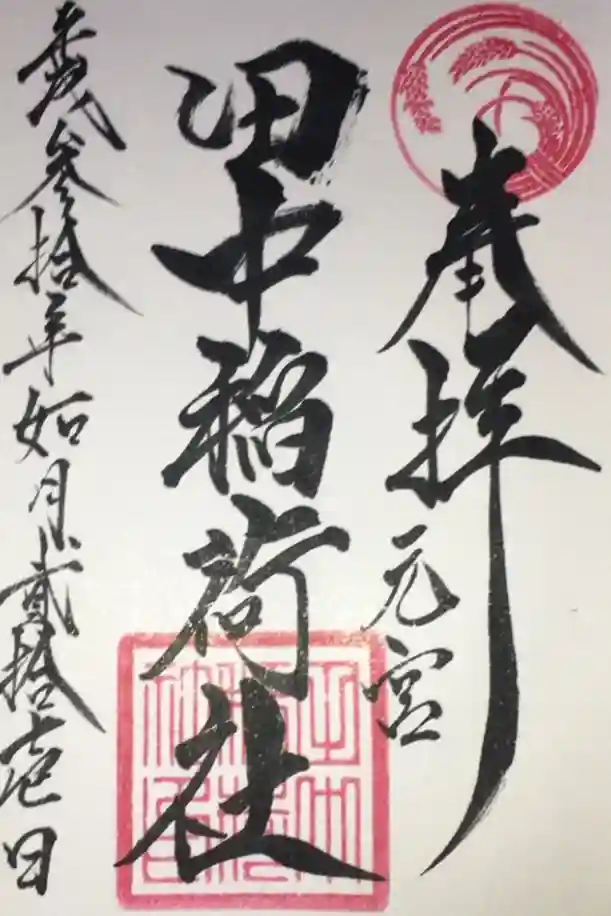 奉拝
元宮
田中稲荷社
平成参拾年如月貮拾壱日